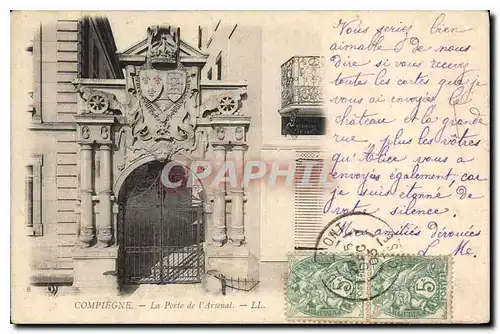 Vous seriez bien
aimable de nous
dire si vous recevez
toutes les cartes que je
vous ai envoyées le
château et la grande
rue, plus les vôtres
qu'Alice vous a
envoyés également car
je suis étonné de
votre silence.
Mes amitiés dévouées
L. Me.
CPARAMA
8
COMPIÈGNE. — La Porte de l'Arsenal. — LL.
5 5